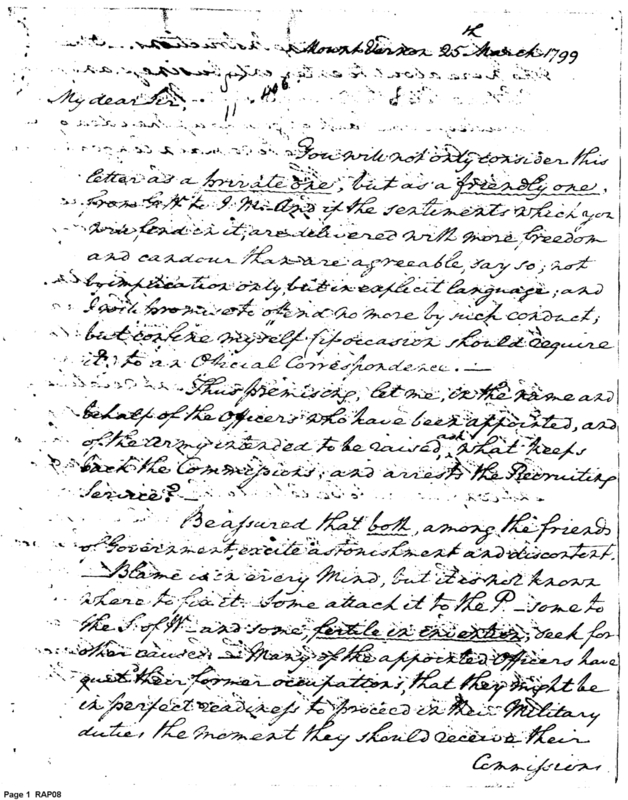 Mount Vernon 25th March 1799
My dear Sir,
You will not only consider this
letter as a private one, but as a friendly one,
from G. W. to J. M. And if the sentiments which you
will find in it, are delivered with more freedom
and candour than are agreeable, say so; not
by implication only but in explicit language; and
I will promise to offend no more by such conduct;
but confine myself (if occasion should require
it) to an Official Correspondence. —
Thus premising, let me, in the name and
behalf of the Officers who have been appointed, and
of the Army intended to be raised, ask what keeps
back the Commissions; and arrests the Recruiting
Service? —
Be assured that both, among the friends
of Government, excite astonishment and discontent.
— Blame is in every Mind, but it is not known
where to fix it. Some attach it to the P — some to
the S. of W — and some, fertile in invention, seek for
other causes. — Many of the appointed Officers have
quit their former occupations, that they might be
in perfect readiness to proceed in their Military
duties the moment they should receive their
Commissions
Page 1 RAP08